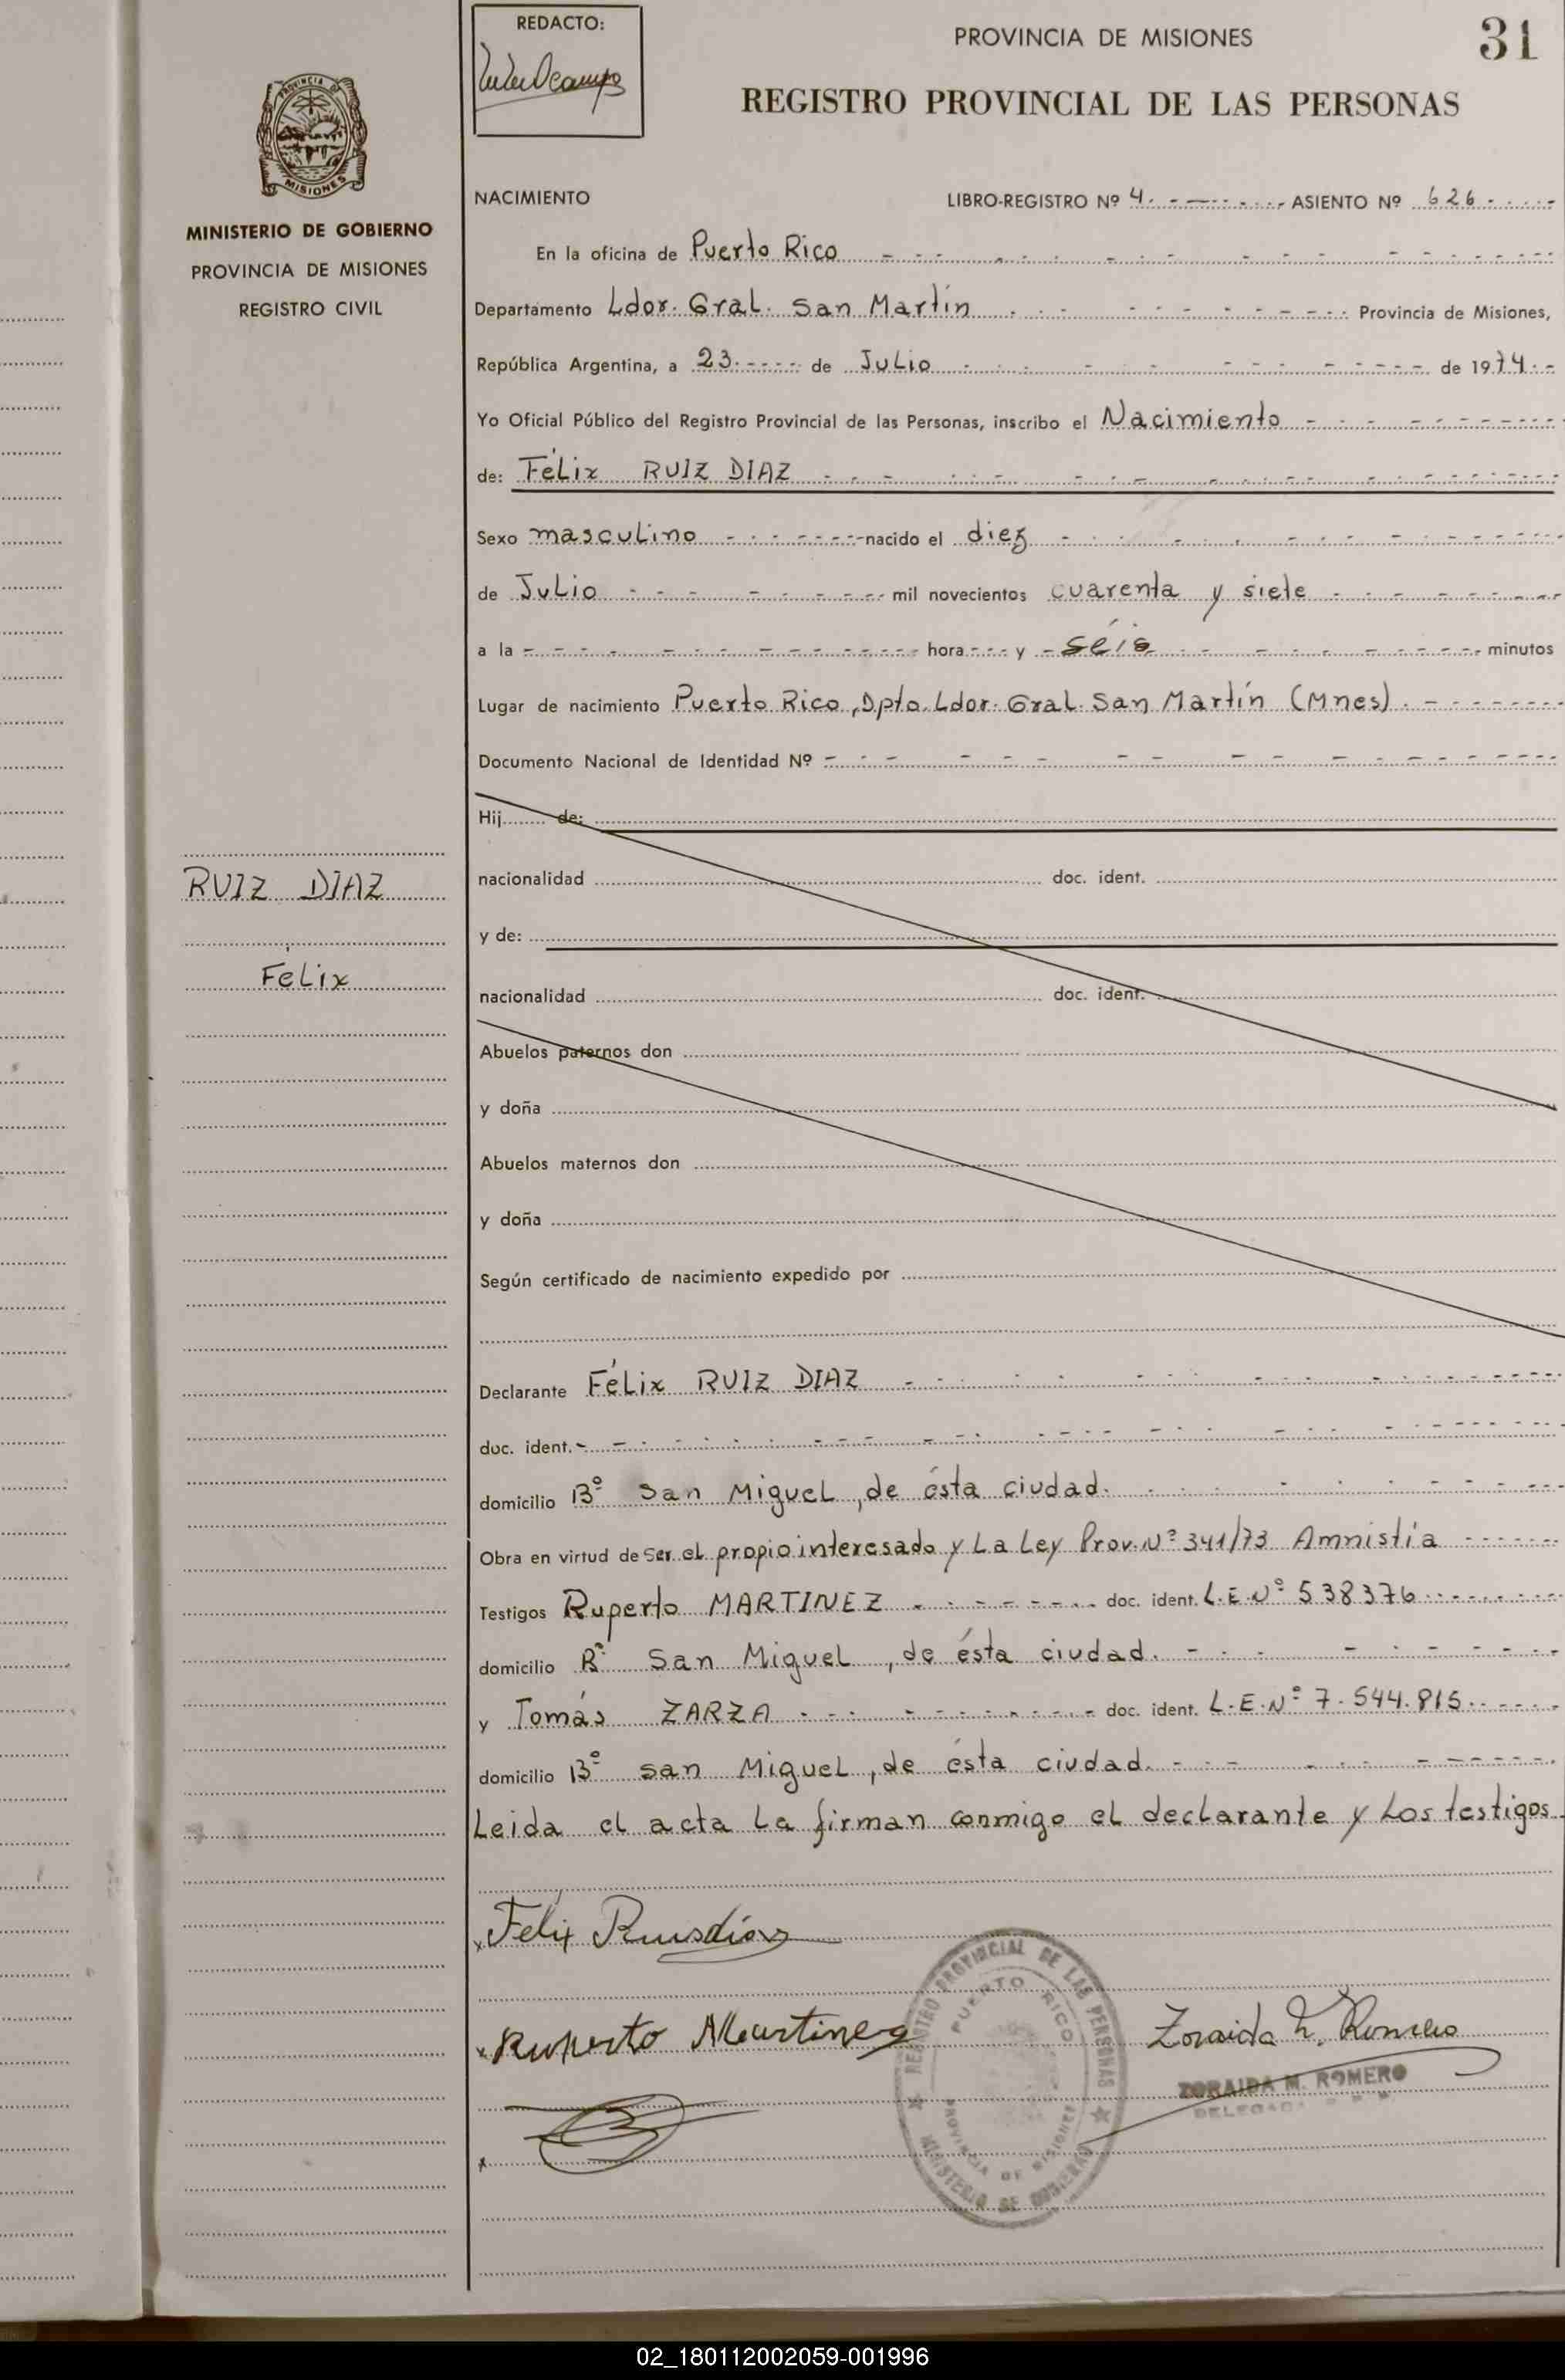 REDACTO:
PROVINCIA DE MISIONES
31
REGISTRO PROVINCIAL DE LAS PERSONAS
PROVINCIA DE
MISIONES
MINISTERIO DE GOBIERNO
PROVINCIA DE MISIONES
REGISTRO CIVIL
NACIMIENTO LIBRO-REGISTRO Nº 4. ASIENTO Nº 626
En la oficina de Puerto Rico
Departamento Ldor. Gral. San Martín Provincia de Misiones,
República Argentina, a 23 de Julio de 1974
Yo Oficial Público del Registro Provincial de las Personas, inscribo el Nacimiento
de: Félix RUIZ DIAZ
Sexo masculino nacido el diez
de Julio mil novecientos cuarenta y siete
a la hora y séis minutos
Lugar de nacimiento Puerto Rico, Dpto. Ldor. Gral. San Martín (Mnes).
Documento Nacional de Identidad Nº
Hij de:
nacionalidad doc. ident.
y de:
nacionalidad doc. ident.
Abuelos paternos don
y doña
Abuelos maternos don
y doña
Según certificado de nacimiento expedido por
RUIZ DIAZ
Félix
Declarante Félix RUIZ DIAZ
doc. ident.
domicilio Bº San Miguel, de ésta ciudad.
Obra en virtud de ser el propio interesado y La Ley Prov. Nº 341/73 Amnistía
Testigos Ruperto MARTINEZ doc. ident. L.E.Nº 538376
domicilio Bº San Miguel, de ésta ciudad.
y Tomás ZARZA doc. ident. L.E.Nº 7.544.815
domicilio Bº San Miguel, de ésta ciudad.
Leida el acta La firman conmigo el declarante y Los testigos
Félix Ruisdíaz
Ruperto Martinez
Zoraida M. Romero
ZORAIDA M. ROMERO
REGISTRO PROVINCIAL DE LAS PERSONAS
PUERTO RICO
PROVINCIA DE MISIONES
MINISTERIO DE GOBIERNO
02_180112002059-001996